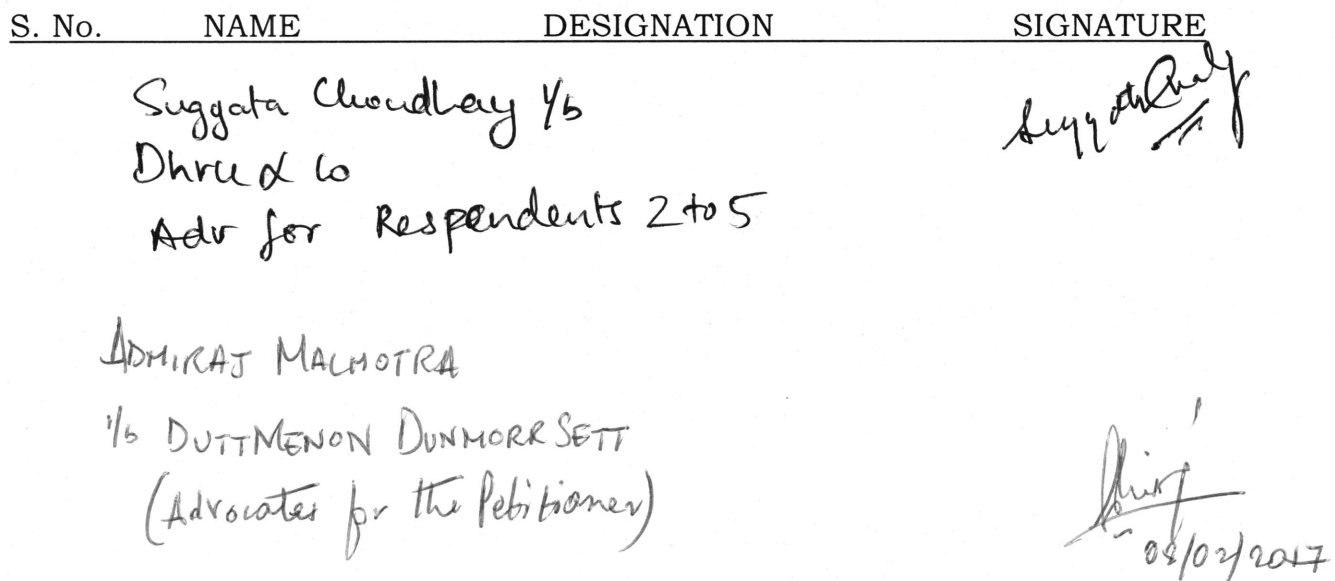 S. No. NAME DESIGNATION SIGNATURE
Suggata Choudhay i/b
Dhru & Co
Adv for Respondents 2 to 5
ADHIRAJ MALHOTRA
i/b DUTTMENON DUNMORRSETT
(Advocates for the Petitioner)
08/02/2017